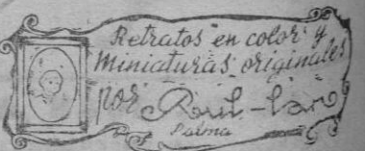 Retratos en color y
miniaturas originales
por Raúl-
Palma